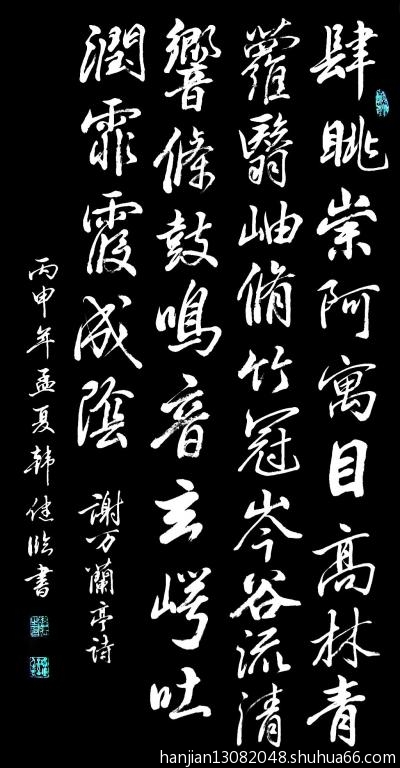 肆眺崇阿寓目髙林青
蘿翳岫脩竹冠岑谷流清
響條鼓鳴音玄崿吐
潤霏霞成陰
謝万蘭亭詩
丙申年孟夏韩健临書
hanjian13082048.shuhua66.com